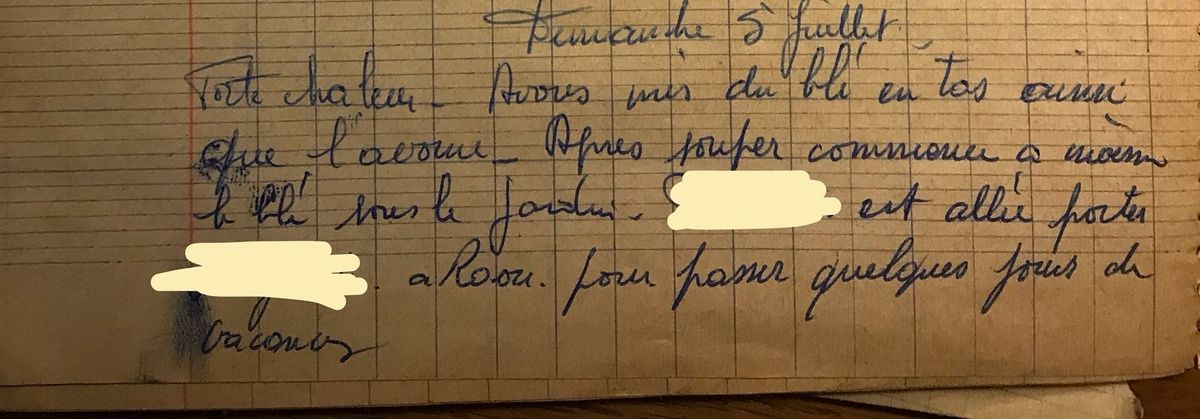 Dimanche 5 juillet.
Forte chaleur - Avons mis du blé en tas ainsi
que l'avoine - Après souper commencer à
le blé sous le jardin. est allée porter
a pour passer quelques jours de
vacances